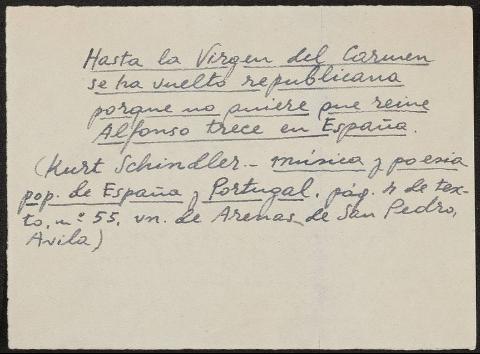 Hasta la Virgen del Carmen
se ha vuelto republicana
porque no quiere que reine
Alfonso trece en España.
(Kurt Schindler.- música y poesia
pop. de España y Portugal, pág. 4 de tex-
to, n.º 55, vn. de Arenas de San Pedro,
Avila)